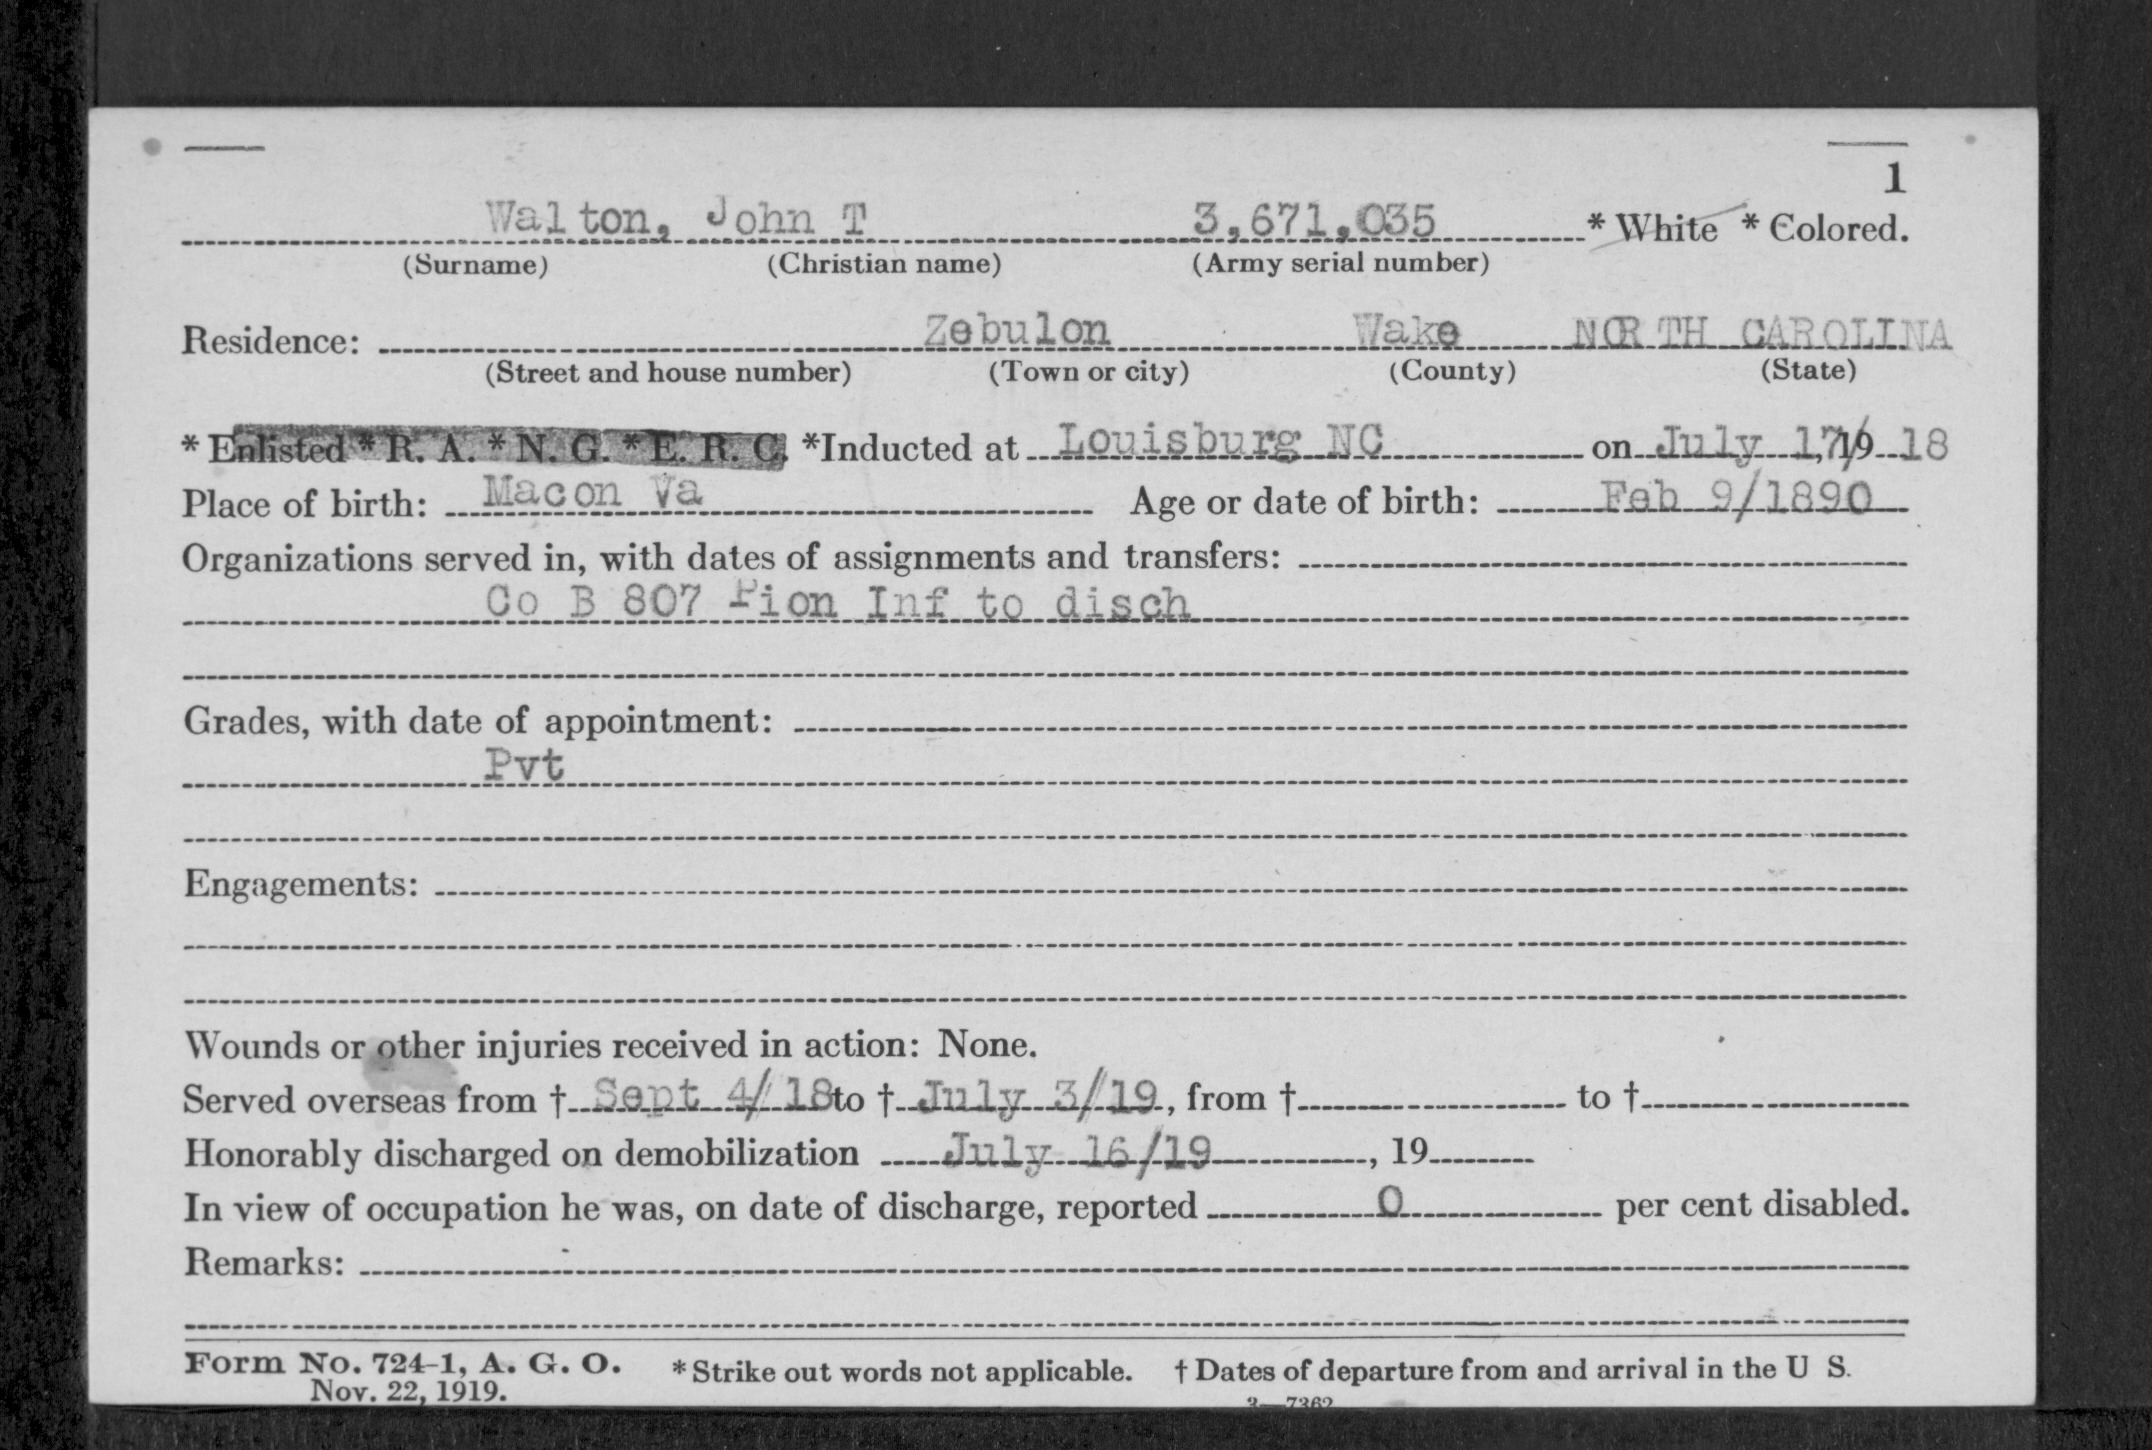 1
Walton, John T 3,671,035 * White * Colored.
(Surname) (Christian name) (Army serial number)
Residence: Zebulon Wake NORTH CAROLINA
(Street and house number) (Town or city) (County) (State)
* Enlisted * R. A. * N. G. * E. R. C. *Inducted at Louisburg NC on July 17/, 19 18
Place of birth: Macon Va Age or date of birth: Feb 9/1890
Organizations served in, with dates of assignments and transfers:
Co B 807 Pion Inf to disch
Grades, with date of appointment:
Pvt
Engagements:
Wounds or other injuries received in action: None.
Served overseas from † Sept 4/ 18 to † July 3/19, from † to †
Honorably discharged on demobilization July 16/19, 19
In view of occupation he was, on date of discharge, reported 0 per cent disabled.
Remarks:
Form No. 724-1, A. G. O. * Strike out words not applicable. † Dates of departure from and arrival in the U S.
Nov. 22, 1919.
3—7362